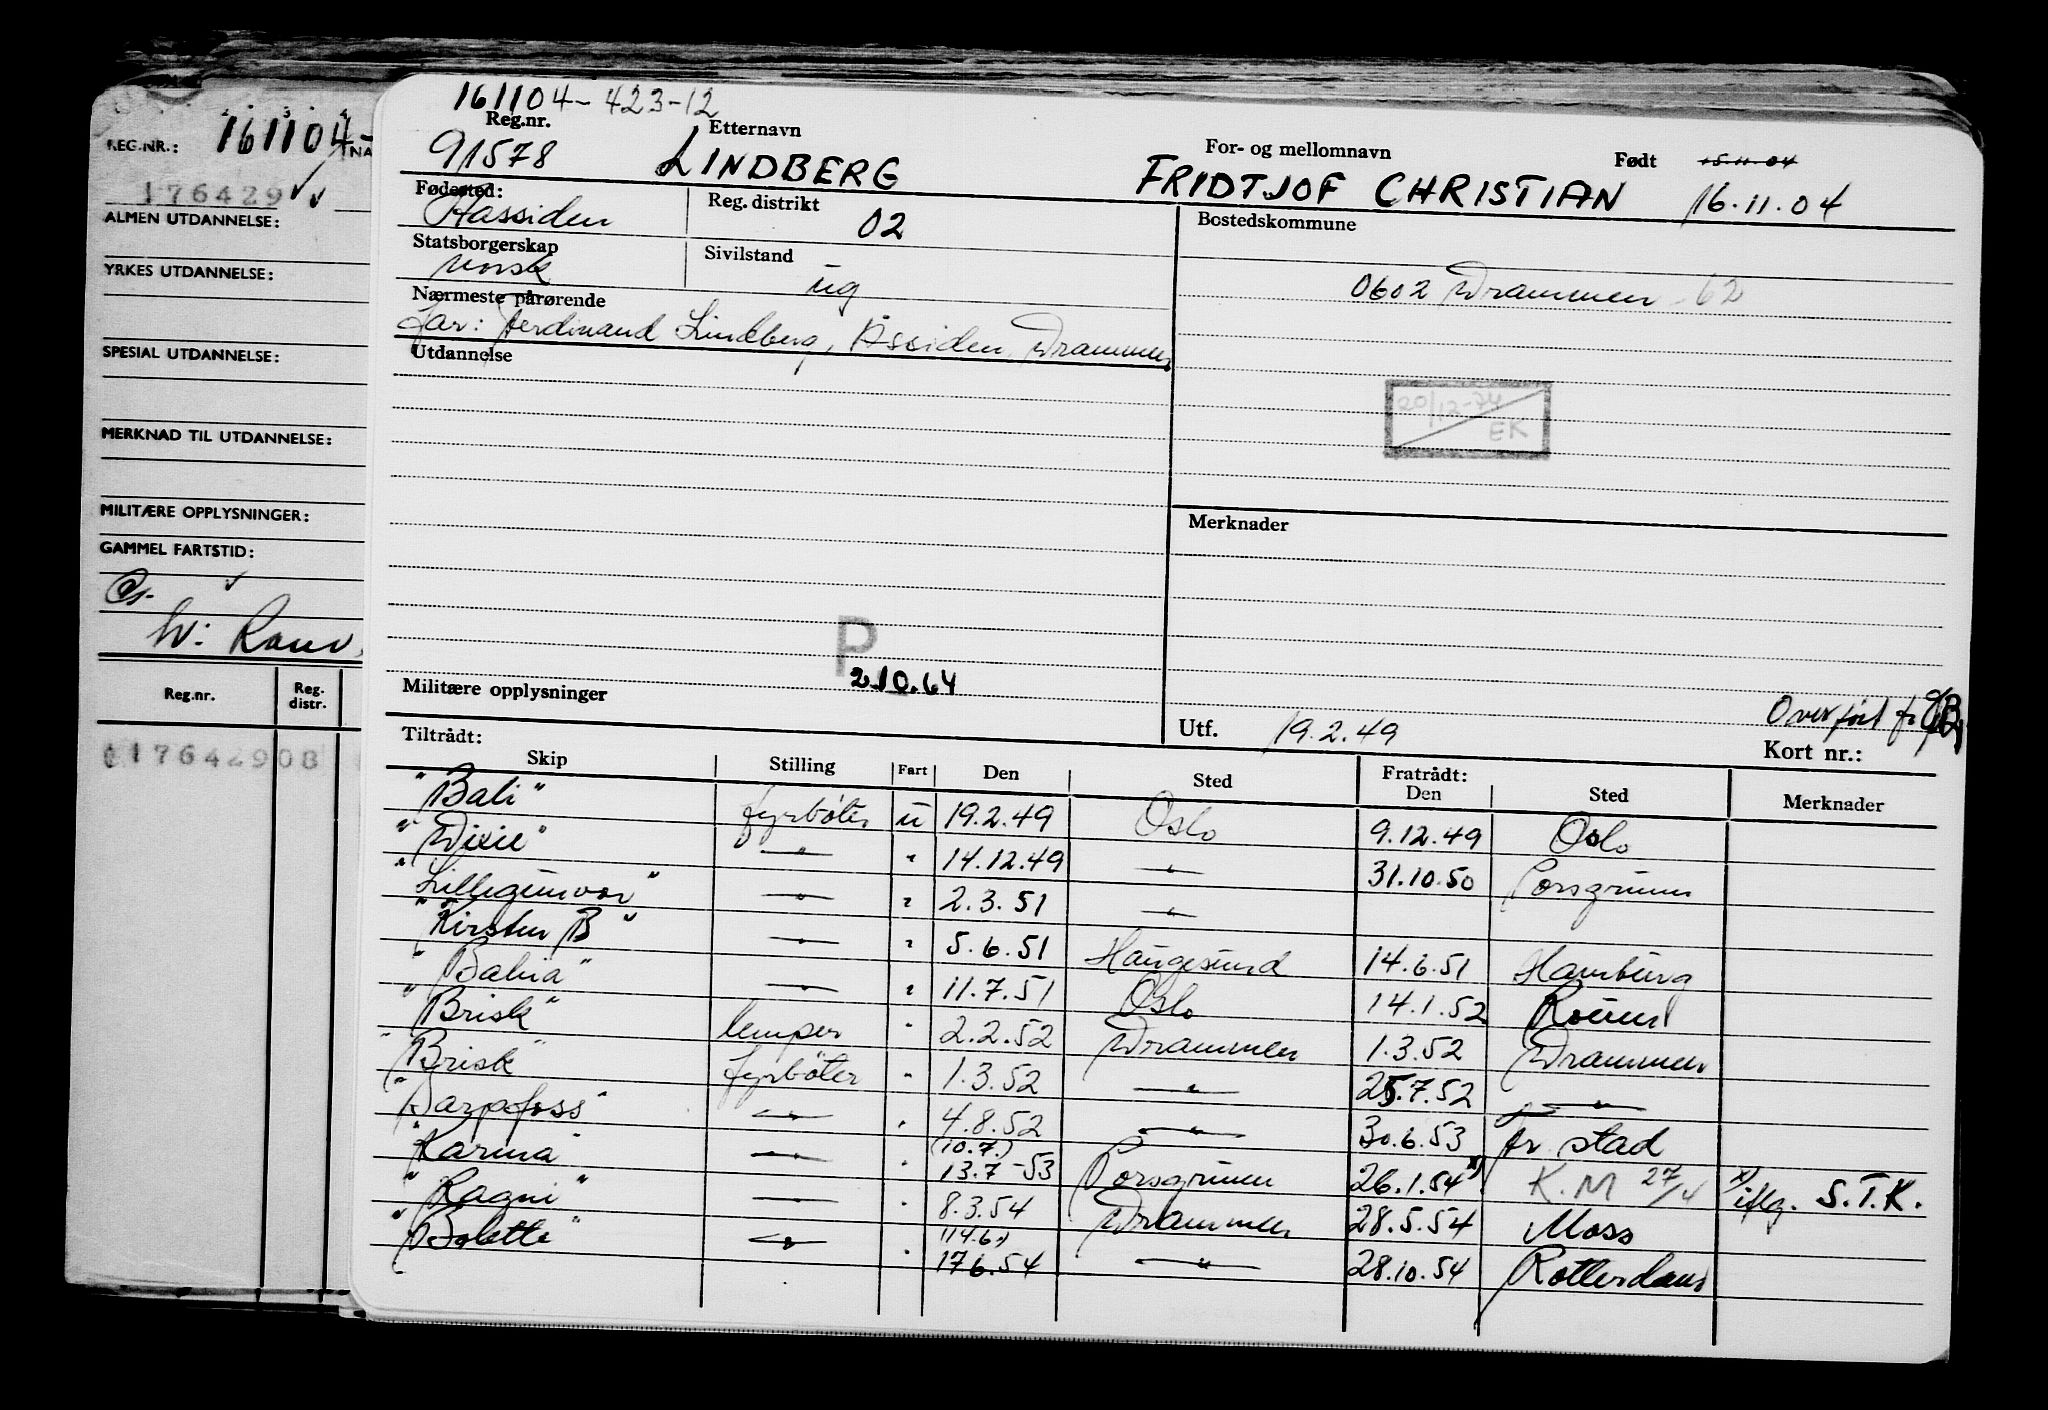 161104-
REG.NR.:
NA
176429
ALMEN UTDANNELSE:
YRKES UTDANNELSE:
SPESIAL UTDANNELSE:
MERKNAD TIL UTDANNELSE:
MILITÆRE OPPLYSNINGER:
GAMMEL FARTSTID:
Reg.nr. Reg. distr.
17642908
161104-423-12
Reg.nr. Etternavn For- og mellomnavn Født 15.11.04
91578 LINDBERG FRIDTJOF CHRISTIAN 16.11.04
Fødested: Reg. distrikt 02 Bostedskommune
Åassiden
Statsborgerskap Sivilstand
norsk ug 0602 Drammen - 62
Nærmeste pårørende
far: Ferdinand Lindberg, Åssiden, Drammen
Utdannelse
20/12-74
EK
Merknader
P
2.10.64
Militære opplysninger
Utf. 19.2.49 Overført fr.
Kort nr.:
Tiltrådt: Fratrådt:
Skip Stilling Fart Den Sted Den Sted Merknader
"Bali" fyrbøter u 19.2.49 Oslo 9.12.49 Oslo
"Dixie" —"— " 14.12.49 —"— 31.10.50 Porsgrunn
"Lillegunvor" —"— " 2.3.51 —"—
"Kirsten B" —"— " 5.6.51 Haugesund 14.6.51 Hamburg
"Bahia" —"— " 11.7.51 Oslo 14.1.52 Rouen
"Brisk" lemper " 2.2.52 Drammen 1.3.52 Drammen
"Brisk" fyrbøter " 1.3.52 —"— 25.7.52 —"—
"Sarpfoss" —"— " 4.8.52 —"— 30.6.53 fr. stad
"Karma" —"— " (10.7.) 13.7-53 Porsgrunn 26.1.54 x) K.M 27/4 x) iflg. S.T.K.
"Ragni" —"— " 8.3.54 Drammen 28.5.54 Moss
"Bolette" —"— " (14.6.) 17.6.54 —"— 28.10.54 Rotterdam